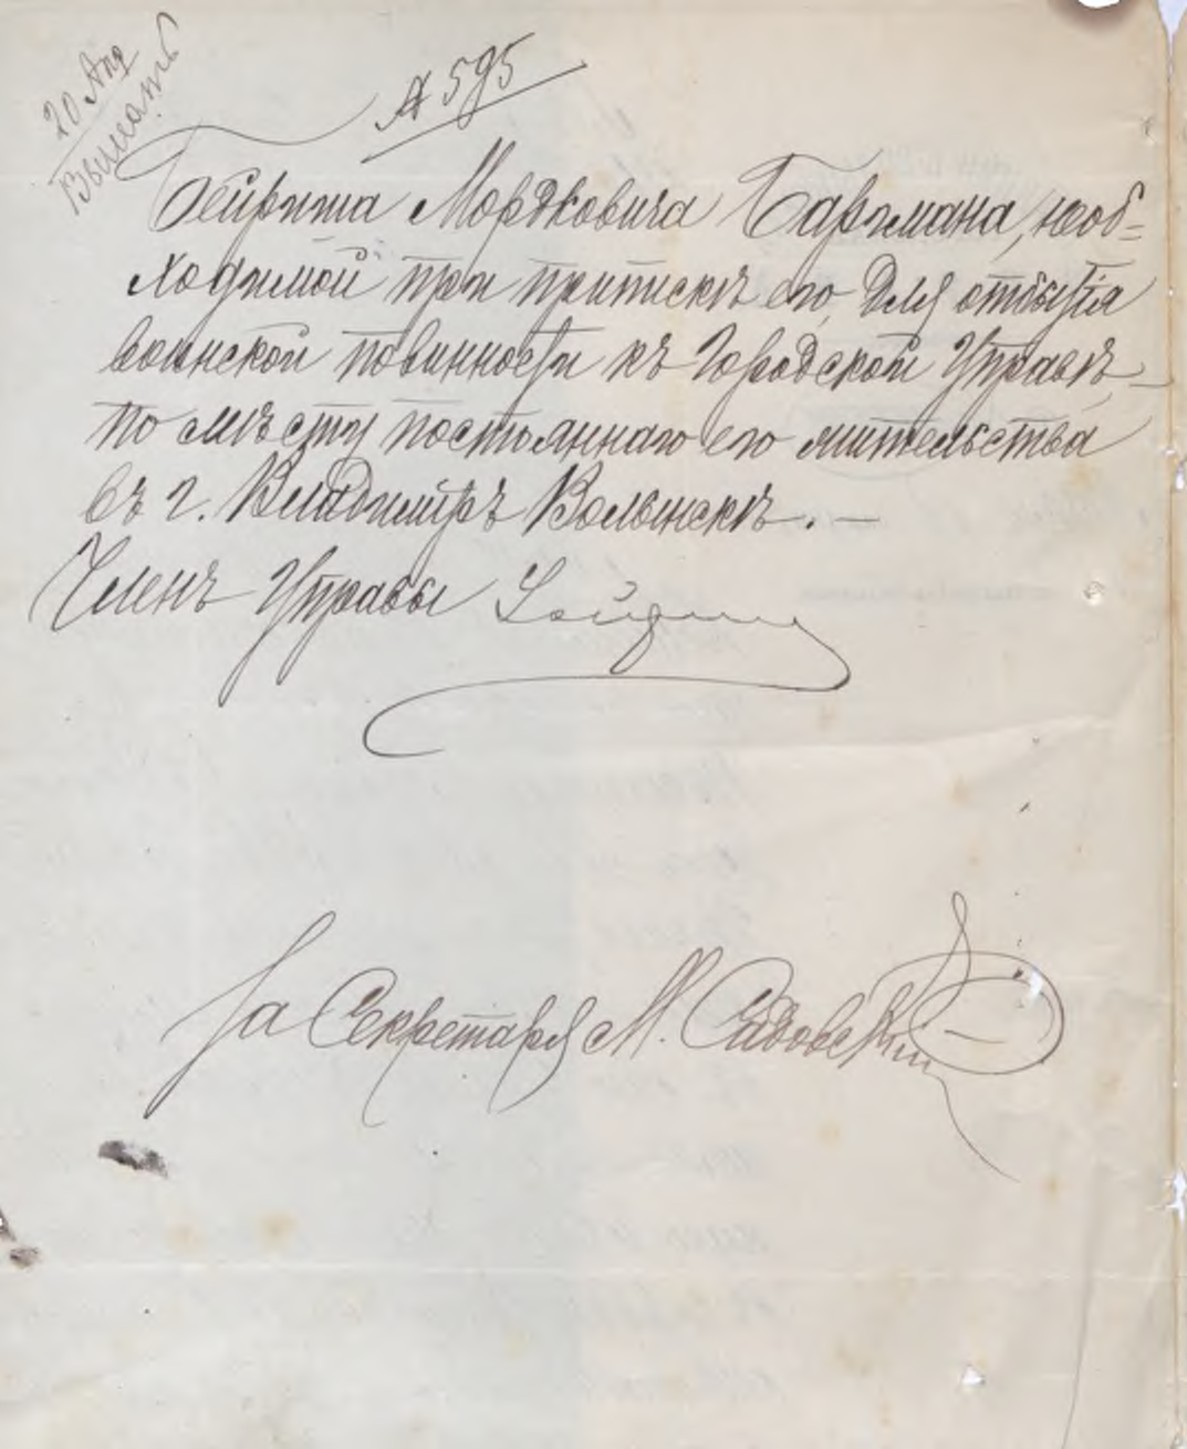 20 Апр
Выслать
№ 595
Мордковича необ=
ходимой при припискѣ его, для отбытія
воинской повинности къ Городской Управѣ
по мѣсту постояннаго его жительства
въ г. Владимірѣ Волынскѣ. —
Членъ Управы
За Секретаря М. Садовскій